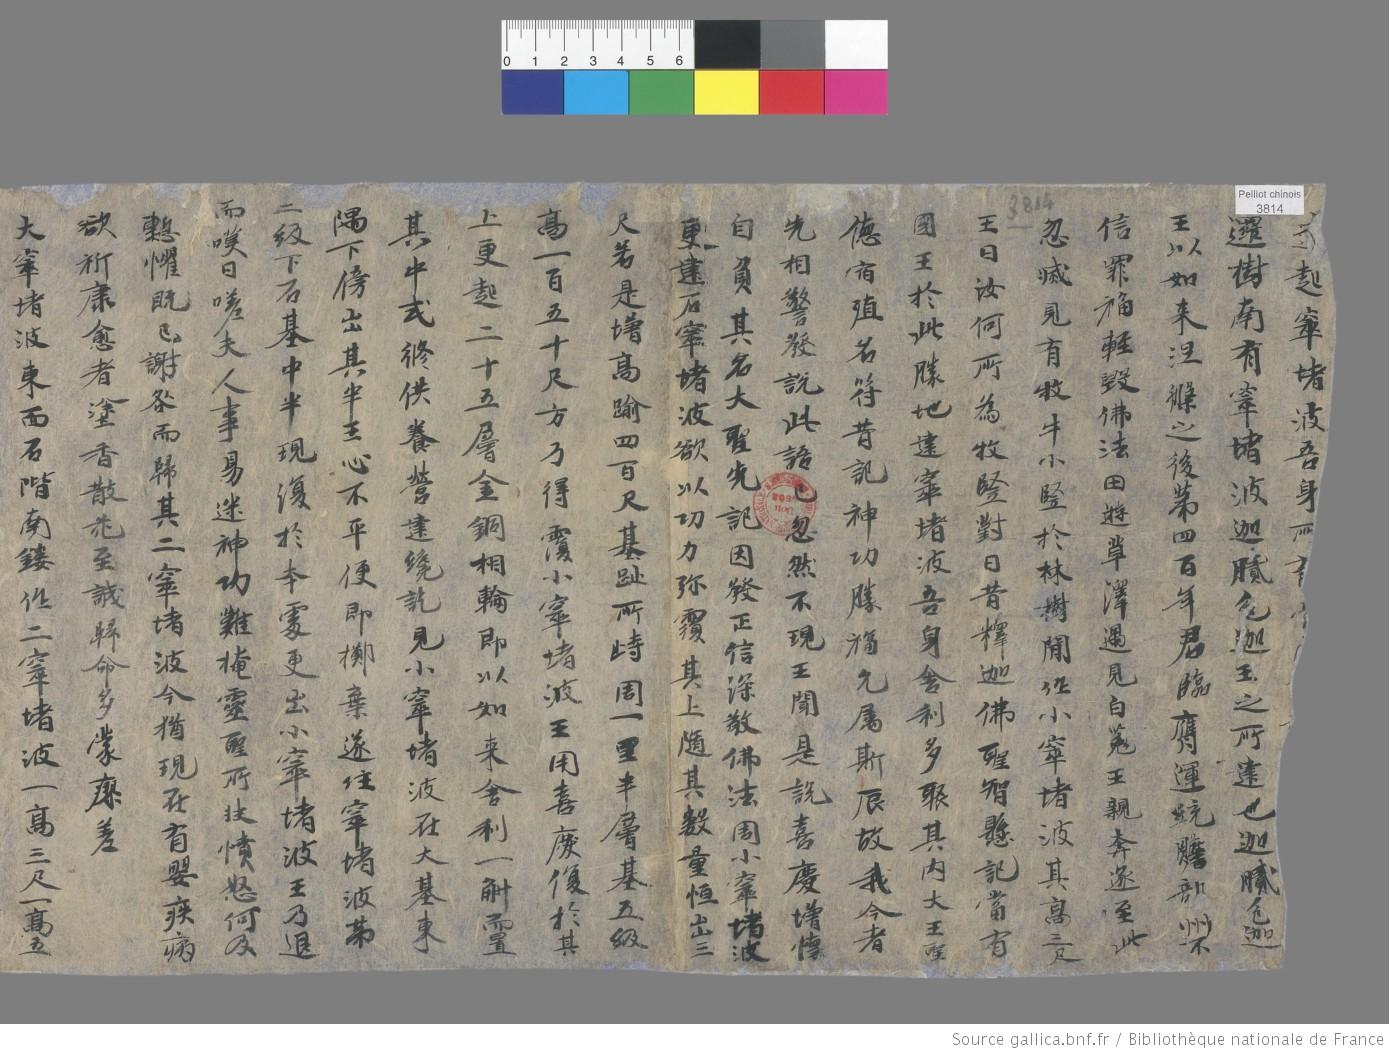 0 1 2 3 4 5 6
Pelliot chinois
3814
3814
起窣堵波吾身所有
邏樹南有窣堵波迦膩色迦王之所建也迦膩色迦
王以如来涅槃之後第四百年君臨膺運統贍部州不
信罪福輕毀佛法田遊草澤遇見白菟王親奔逐至此
忽滅見有牧牛小竪於林樹閒作小窣堵波其高三尺
王曰汝何所為牧竪對曰昔釋迦佛聖智懸記當有
國王於此勝地建窣堵波吾身舍利多聚其内大王聖
德宿殖名符昔記神功勝福允属斯辰故我今者
先相警發說此語已忽然不現王聞是說喜慶增懷
自負其名大聖先記因發正信深敬佛法周小窣堵波
更建石窣堵波欲以功力弥覆其上隨其數量恒出三
尺若是增高踰四百尺基趾所峙周一里半層基五級
高一百五十尺方乃得覆小窣堵波王用喜慶復於其
上更起二十五層金銅相輪即以如来舍利一斛而置
其中式修供養營建纔訖見小窣堵波在大基東
隅下傍出其半王心不平便即擲棄遂住窣堵波第
二級下石基中半現復於本處更出小窣堵波王乃退
而嘆曰嗟夫人事易迷神功難掩靈聖所扶憤怒何及
慙懼既已謝咎而歸其二窣堵波今猶現在有嬰疾病
欲祈康愈者塗香散花至誠歸命多蒙瘳差
大窣堵波東面石階南鏤作二窣堵波一高三尺一高五
Source gallica.bnf.fr / Bibliothèque nationale de France